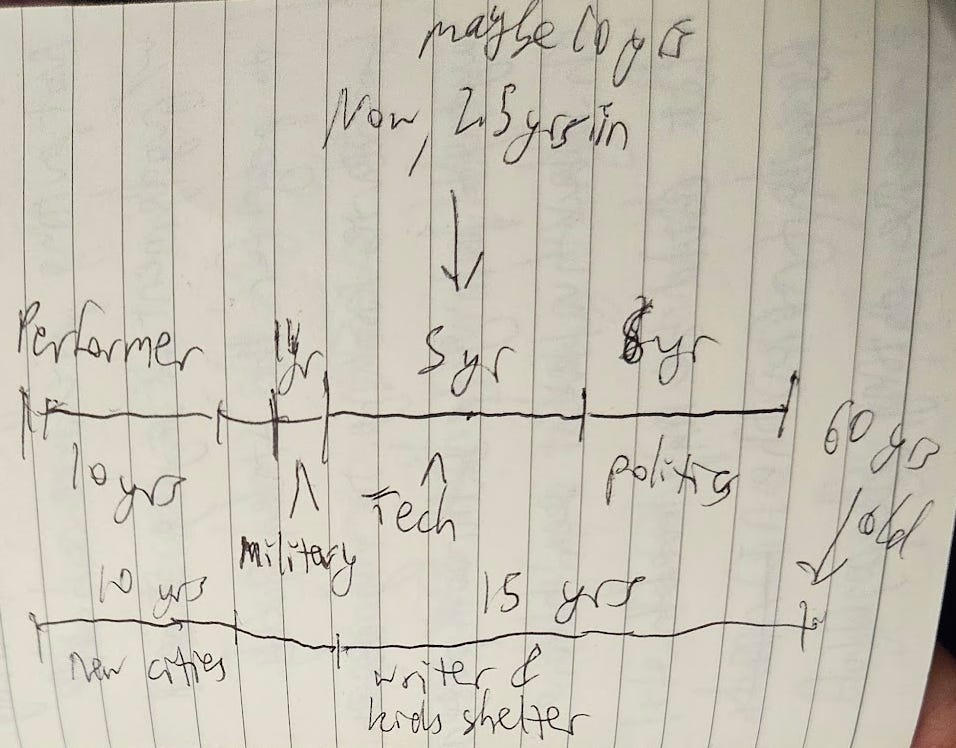 maybe 10 yrs
Now, 2.5 yrs in
Performer 1yr 5 yr yr
10 yrs Tech politics
military
60 yrs
old
10 yrs 15 yrs
new cities writer &
kids shelter